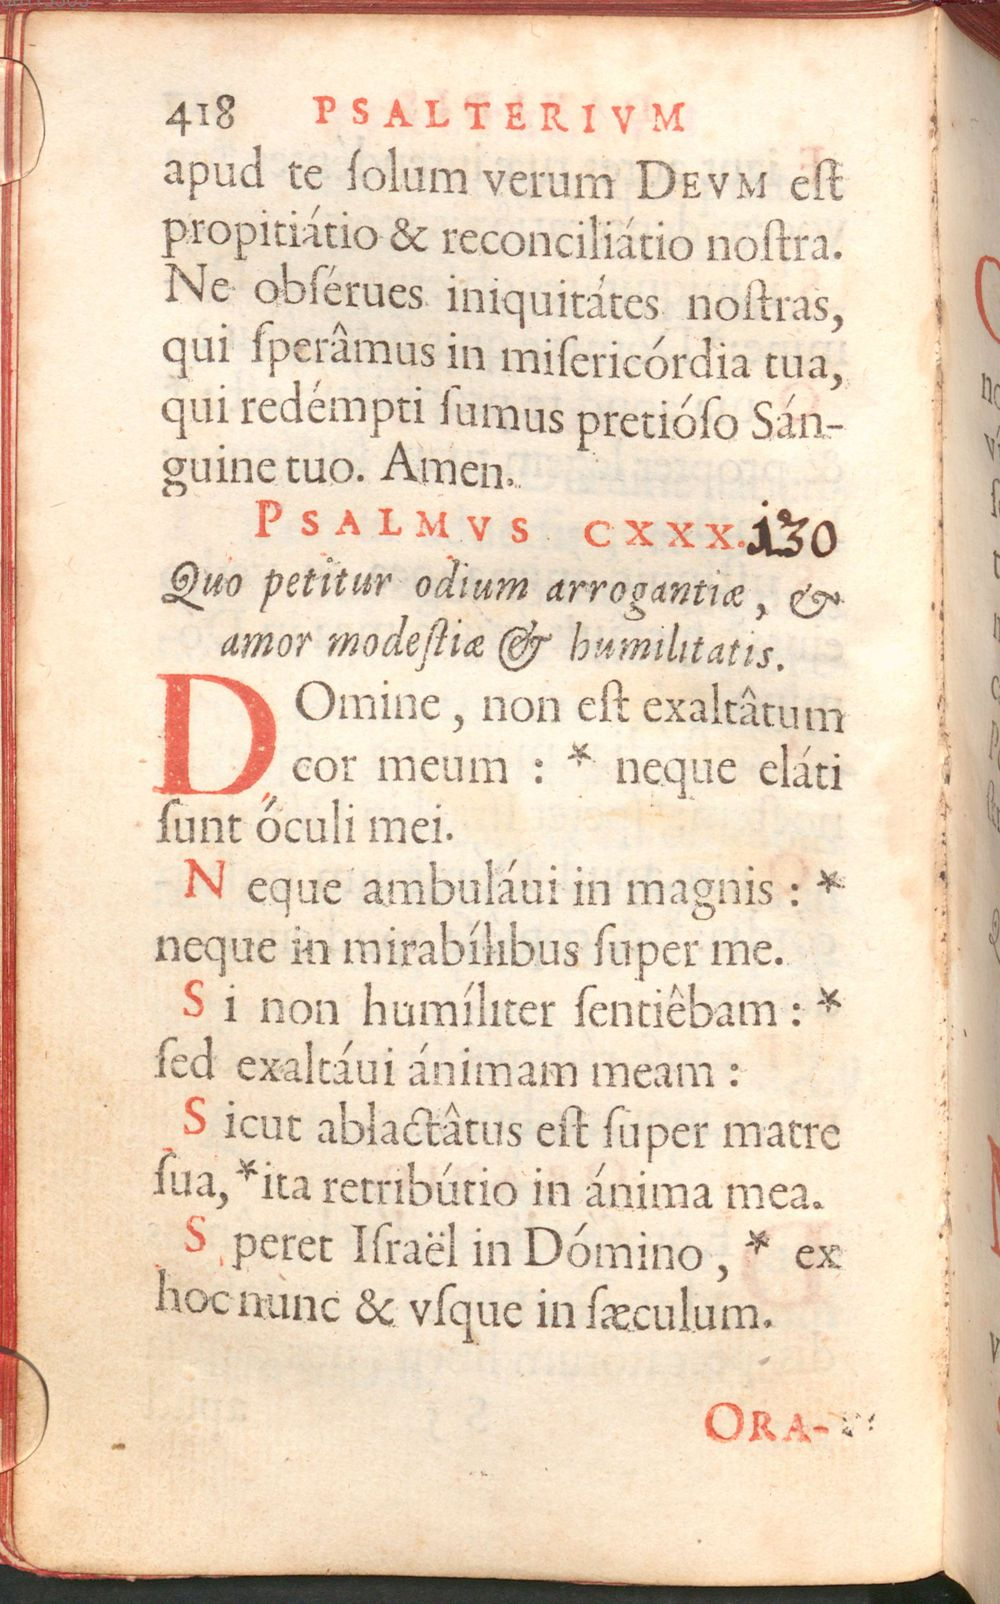 418 PSALTERIVM
apud te ſolum verum DEVM eſt
propitiátio & reconciliátio noſtra.
Ne obſérues iniquitátes noſtras,
qui ſperâmus in miſericórdia tua,
qui redémpti ſumus pretióſo Sán-
guine tuo. Amen.
PSALMVS CXXX. 130
Quo petitur odium arrogantiæ, &
amor modeſtiæ & humilitatis.
DOmine, non eſt exaltâtum
cor meum : * neque eláti
ſunt óculi mei.
Neque ambuláui in magnis : *
neque in mirabílibus ſuper me.
Si non humíliter ſentiêbam : *
ſed exaltáui ánimam meam :
Sicut ablactâtus eſt ſuper matre
ſua, * ita retribútio in ánima mea.
Speret Iſraël in Dómino, * ex
hoc nunc & vſque in ſæculum.
ORA-